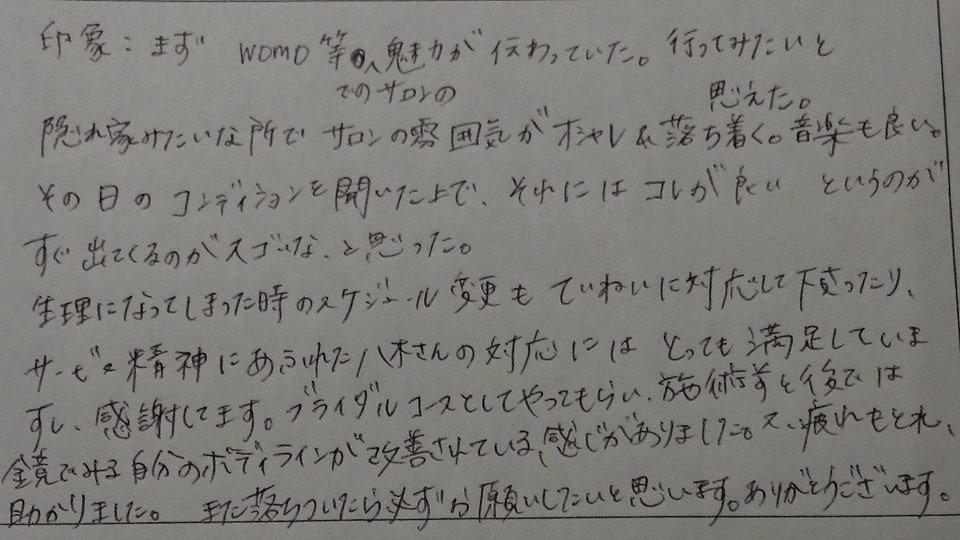 印象：まず womo等の魅力が伝わっていた。行ってみたいと
でのサロンの 思えた。
隠れ家みたいな所でサロンの雰囲気がオシャレ&落ち着く。音楽も良い。
その日のコンディションを聞いた上で、それにはコレが良い というのが
すぐ出てくるのがスゴいな、と思った。
生理になってしまった時のスケジュール変更もていねいに対応して下さったり、
サービス精神にあふれた八木さんの対応にはとっても満足していま
すし、感謝してます。ブライダルコースとしてやってもらい、施術前と後では
鏡でみる自分のボディラインが改善されている、感じがありました。又、疲れもとれ、
助かりました。また落ちついたら必ずお願いしたいと思います。ありがとうございます。